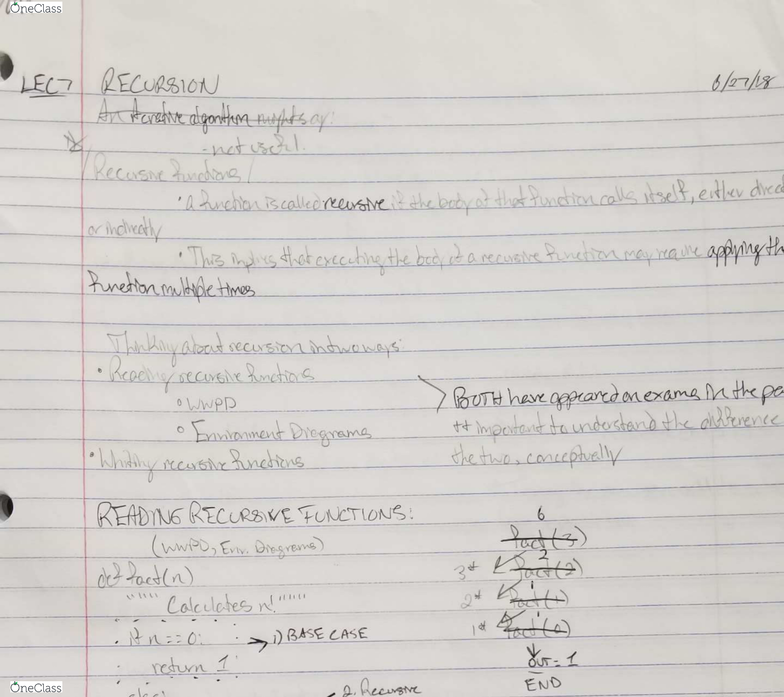 OneClass
LEC 7 RECURSION 6/27/18
An iterative algorithm
- not useful.
Recursive functions
• a function is called recursive if the body of that function calls itself, either direc
or indirectly
• This implies that executing the body of a recursive function may require applying th
function multiple times
Thinking about recursion in two ways:
• Reading recursive functions
BOTH have appeared on exams in the pa
° WWPD
** important to understand the difference
° Environment Diagrams
the two, conceptually
• Writing recursive functions
READING RECURSIVE FUNCTIONS:
6
(WWPD, Env. Diagrams)
fact(3)
2
3* fact(2)
def fact(n)
1
2* fact(1)
""" Calculates n! """
1
1* fact(0)
if n == 0: → 1) BASE CASE
return 1
out = 1
END
else: 2. Recursive
OneClass